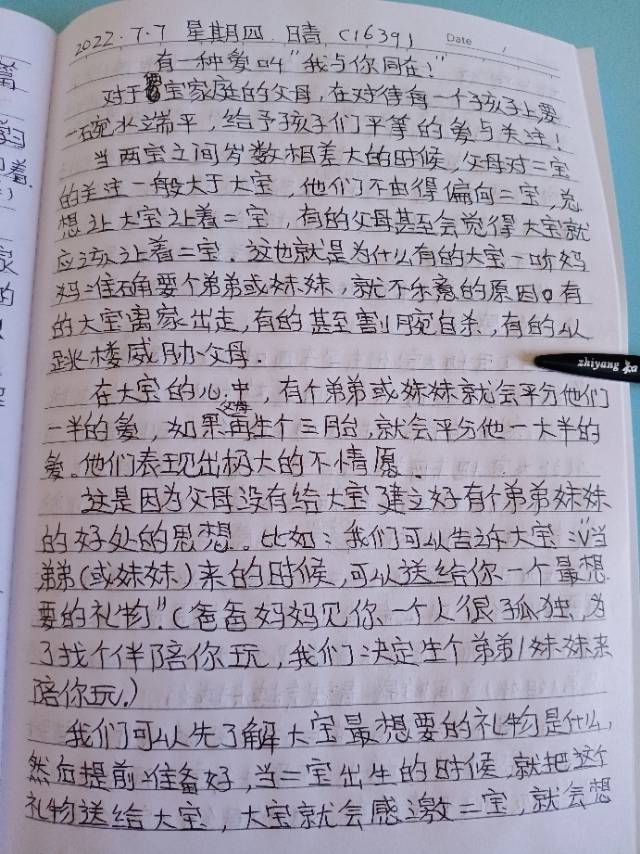 2022.7.7 星期四 晴 (1639) Date
有一种爱叫"我与你同在!"
对于宝家庭的父母,在对待每一个孩子上要
一碗水端平,给予孩子们平等的爱与关注!
当两宝之间岁数相差大的时候,父母对二宝
的关注一般大于大宝,他们不由得偏向二宝,总
想让大宝让着二宝,有的父母甚至会觉得大宝就
应该让着二宝。这也就是为什么有的大宝一听妈
妈准确要个弟弟或妹妹,就不乐意的原因。有
的大宝离家出走,有的甚至割腕自杀,有的以
跳楼威胁父母.
在大宝的心中,有个弟弟或妹妹就会平分他们
一半的爱,如果父母再生个三月台,就会平分他一大半的
爱。他们表现出极大的不情愿.
这是因为父母没有给大宝建立好有个弟弟妹妹
的好处的思想。比如:我们可以告诉大宝:"当
弟弟(或妹妹)来的时候,可以送给你一个最想
要的礼物"(爸爸妈妈见你一个人很孤独,为
了找个伴陪你玩,我们决定生个弟弟/妹妹来
陪你玩.)
我们可以先了解大宝最想要的礼物是什么,
然后提前准备好,当二宝出生的时候,就把这个
礼物送给大宝,大宝就会感激二宝,就会想
zhiyang